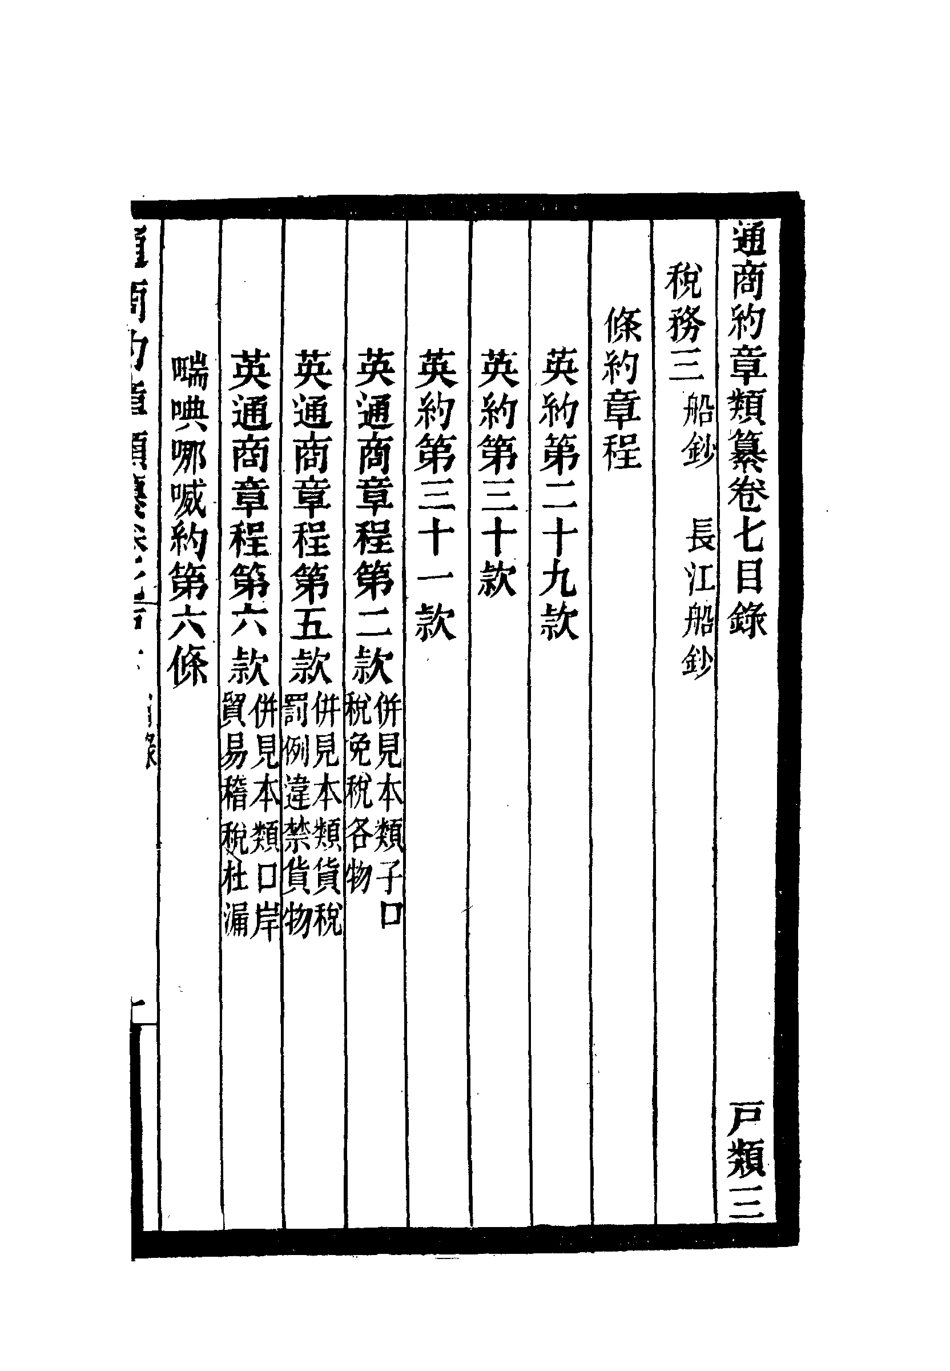 通商約章類纂卷七目錄　戸類三
稅務三　船鈔　長江船鈔
條約章程
英約第二十九款
英約第三十款
英約第三十一款
英通商章程第二款　併見本類子口
稅免稅各物
英通商章程第五款　併見本類貨稅
罰例違禁貨物
英通商章程第六款　併見本類口岸
貿易稽稅杜漏
㗣㖠哪嘁約第六條
通商約章類纂卷七
目錄